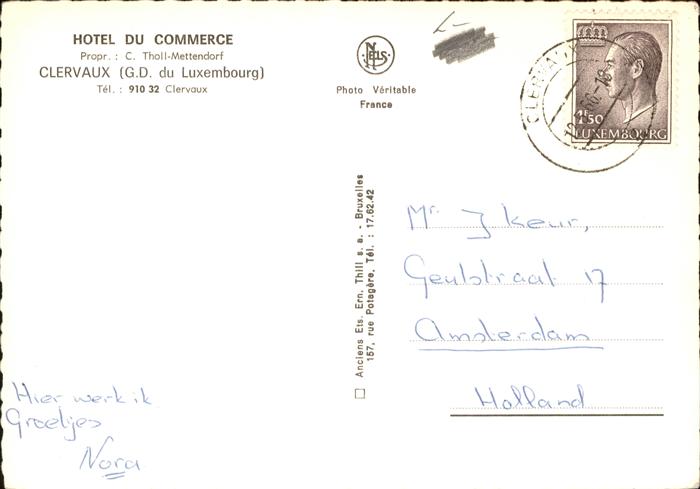 HOTEL DU COMMERCE
Propr. : C. Tholl-Mettendorf
CLERVAUX (G.D. du Luxembourg)
Tél. : 910 32 Clervaux
NELS
Photo Véritable
France
CLERVAUX
1F50
LUXEMBOURG
Anciens Ets. Ern. Thill s. a. - Bruxelles
157, rue Potagère, Tél. : 17.62.42
Mr J Keur,
Geulstraat 17
Amsterdam
Holland
Hier werk ik
Groetjes
Nora